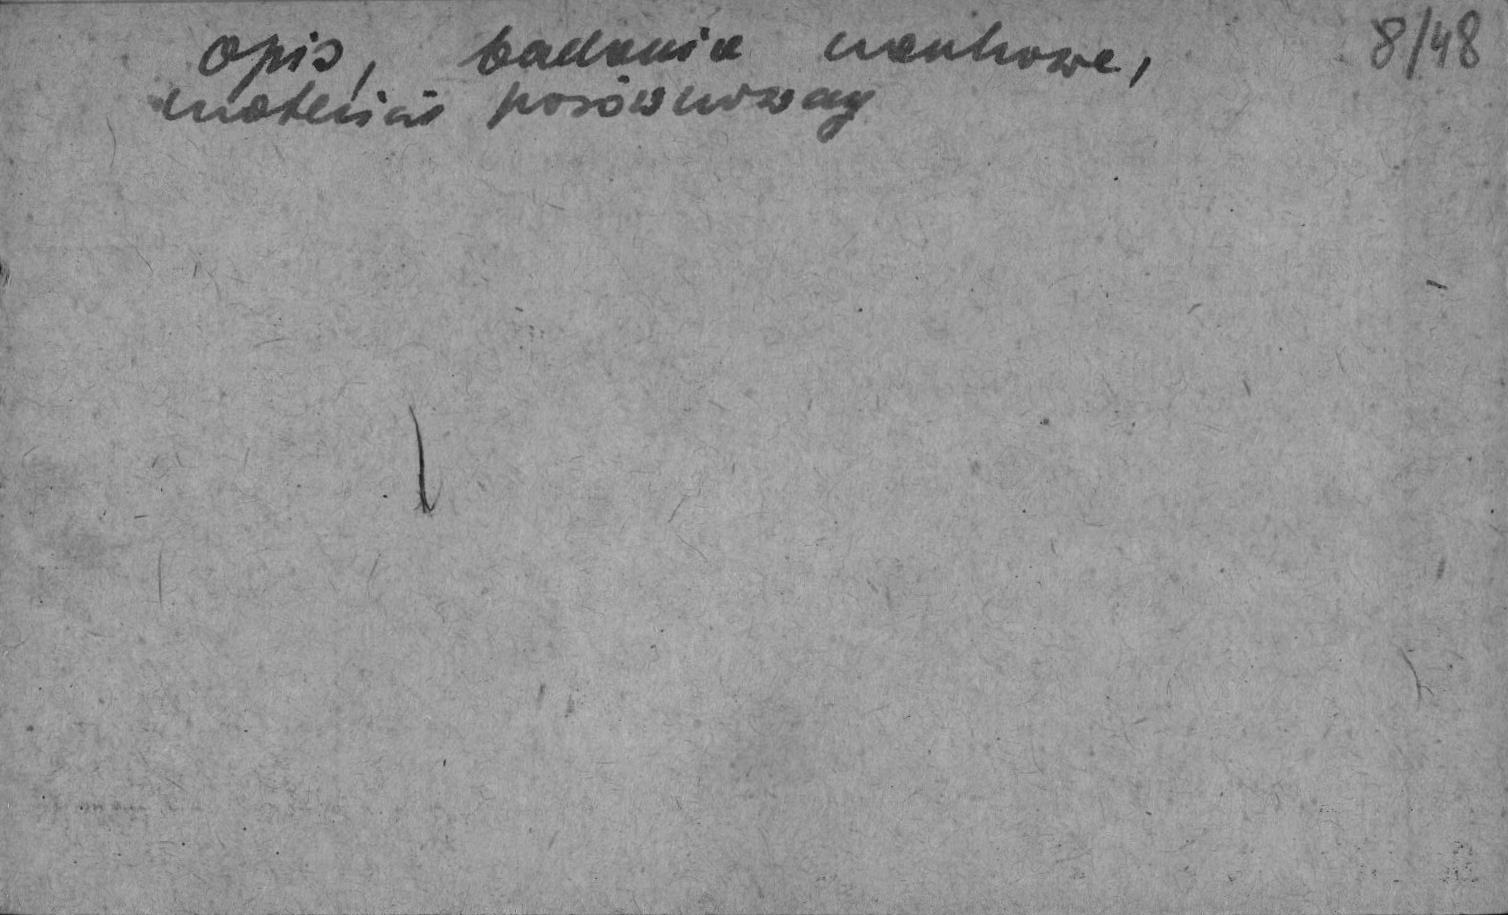 opis, badania naukowe, 8/48
materiał porównawczy